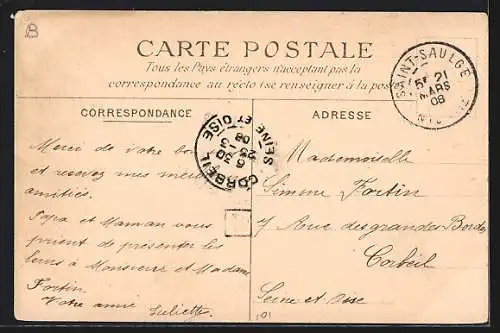 CARTE POSTALE
Tous les Pays étrangers n'acceptent pas la
correspondance au recto (se renseigner à la poste
CORRESPONDANCE
Merci de votre bon
et recevez mes
amitiés.
Papa et Maman vous
prient de présenter les
leurs à Monsieur et Madame
Fortin.
Votre amie
Juliette.
ADRESSE
Mademoiselle
Simone Fortin
7 Rue des grandes Bordes
Corbeil
Seine et Oise
SAINT-SAULGE
21
MARS
08
CORBEIL
SEINE ET OISE
6 30
23
3
08